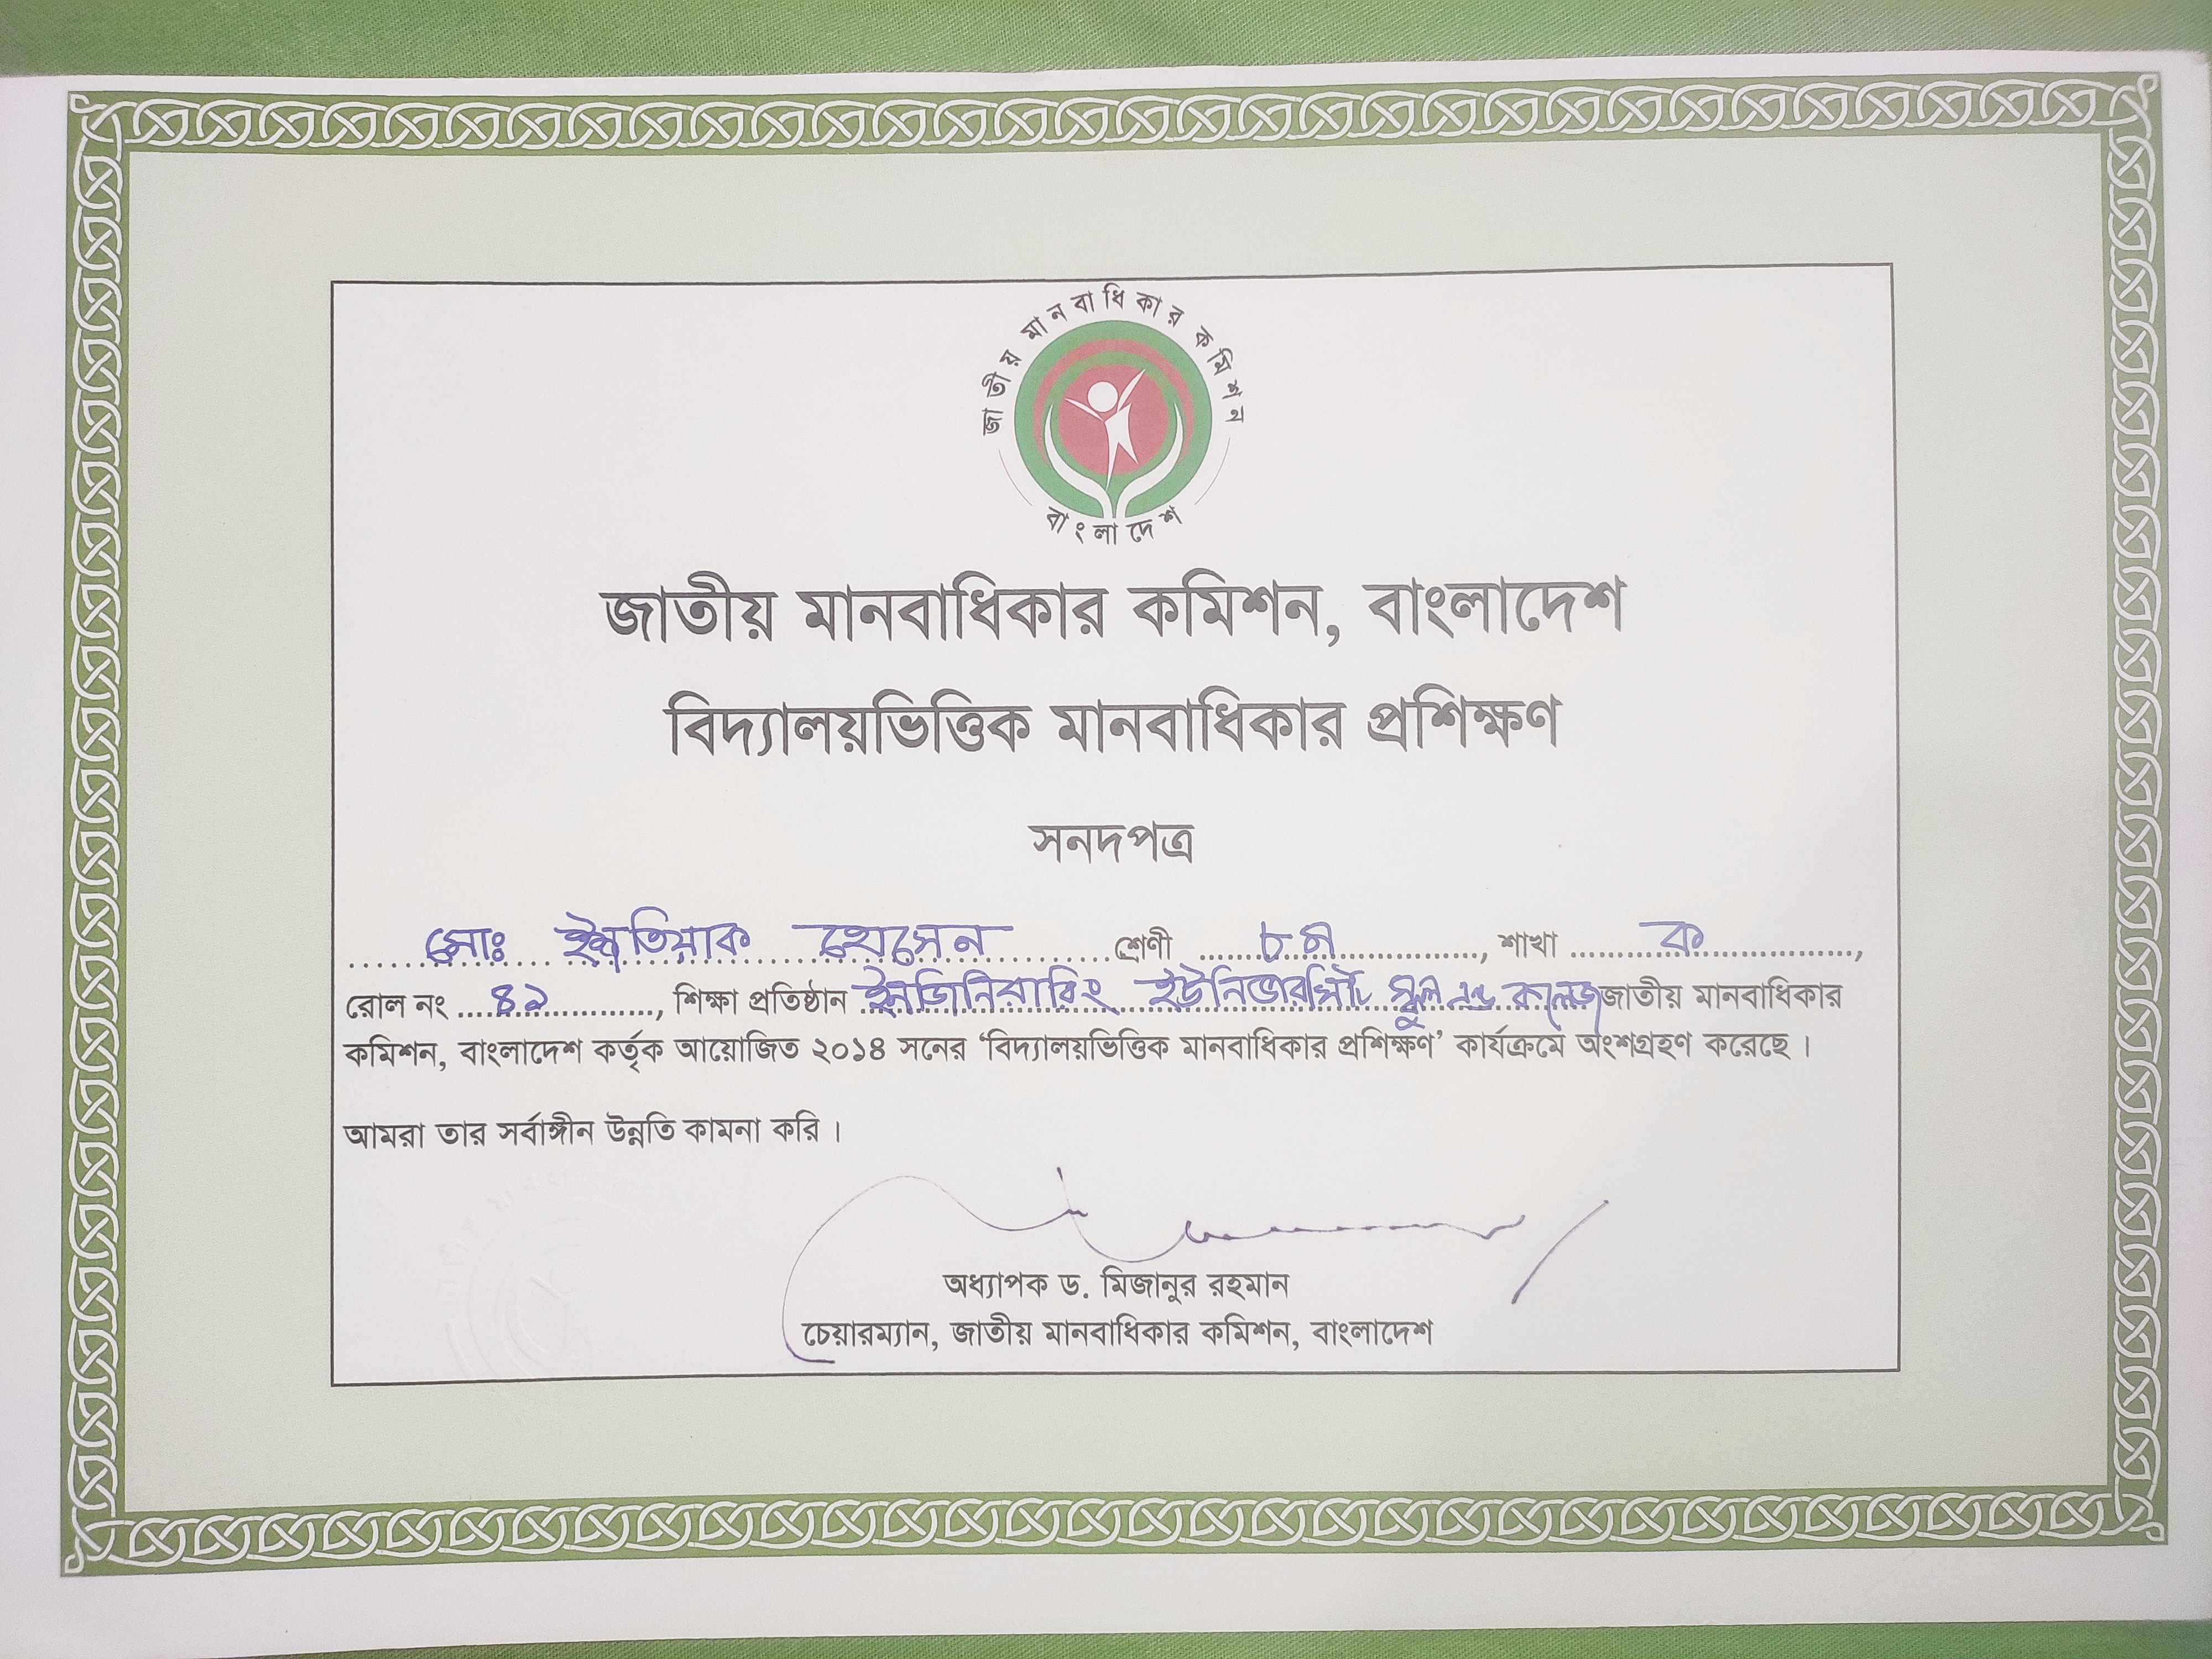 জাতীয় মানবাধিকার কমিশন
বাংলাদেশ
জাতীয় মানবাধিকার কমিশন, বাংলাদেশ
বিদ্যালয়ভিত্তিক মানবাধিকার প্রশিক্ষণ
সনদপত্র
মোঃ হোসেন শ্রেণী ৮ম, শাখা ক,
রোল নং ৪৯, শিক্ষা প্রতিষ্ঠান ইনজিনিয়ারিং ইউনিভারসিটি স্কুল এন্ড কলেজ জাতীয় মানবাধিকার
কমিশন, বাংলাদেশ কর্তৃক আয়োজিত ২০১৪ সনের ‘বিদ্যালয়ভিত্তিক মানবাধিকার প্রশিক্ষণ’ কার্যক্রমে অংশগ্রহণ করেছে।
আমরা তার সর্বাঙ্গীন উন্নতি কামনা করি।
অধ্যাপক ড. মিজানুর রহমান
চেয়ারম্যান, জাতীয় মানবাধিকার কমিশন, বাংলাদেশ